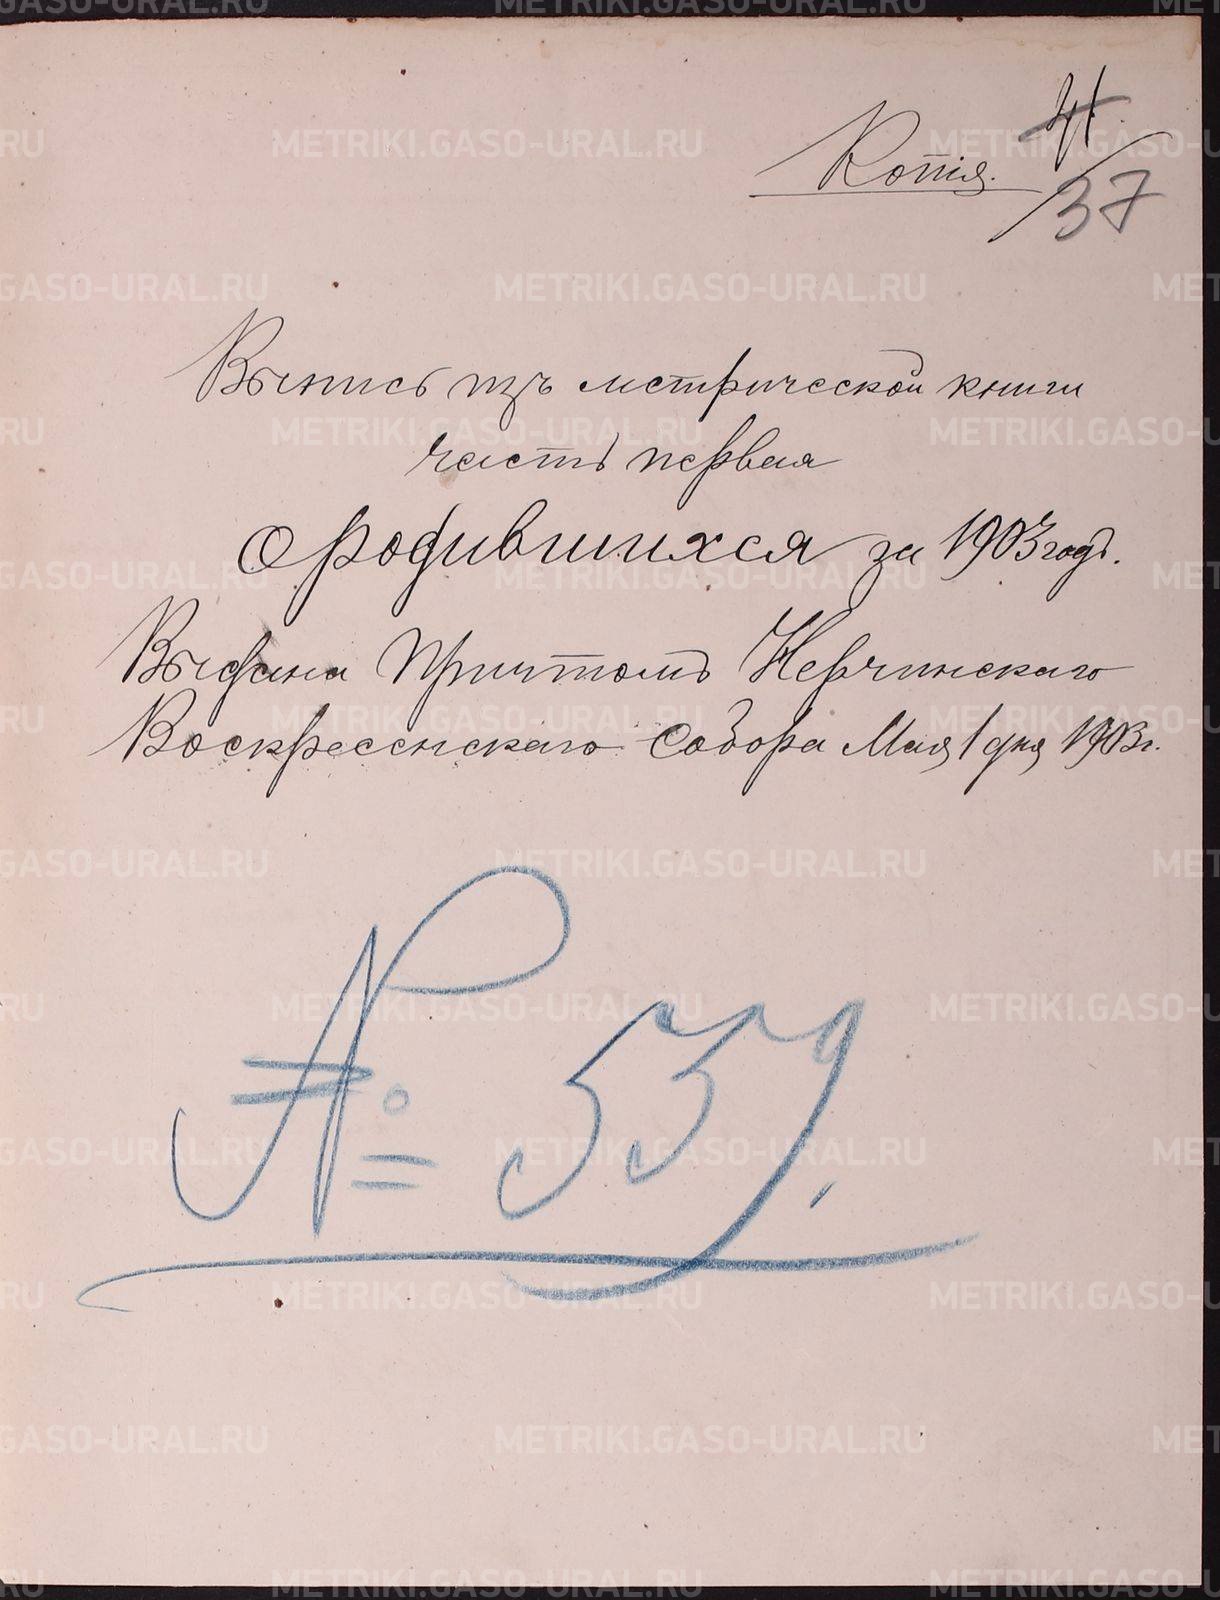 41
Копія.
37
Выпись изъ метрической книги
часть первая
о родившихся за 1903 годъ.
Выдана Причтомъ Нерчинскаго
Воскресенскаго Собора Мая 1 дня 1903 г.
№ 559.
METRIKI.GASO-URAL.RU